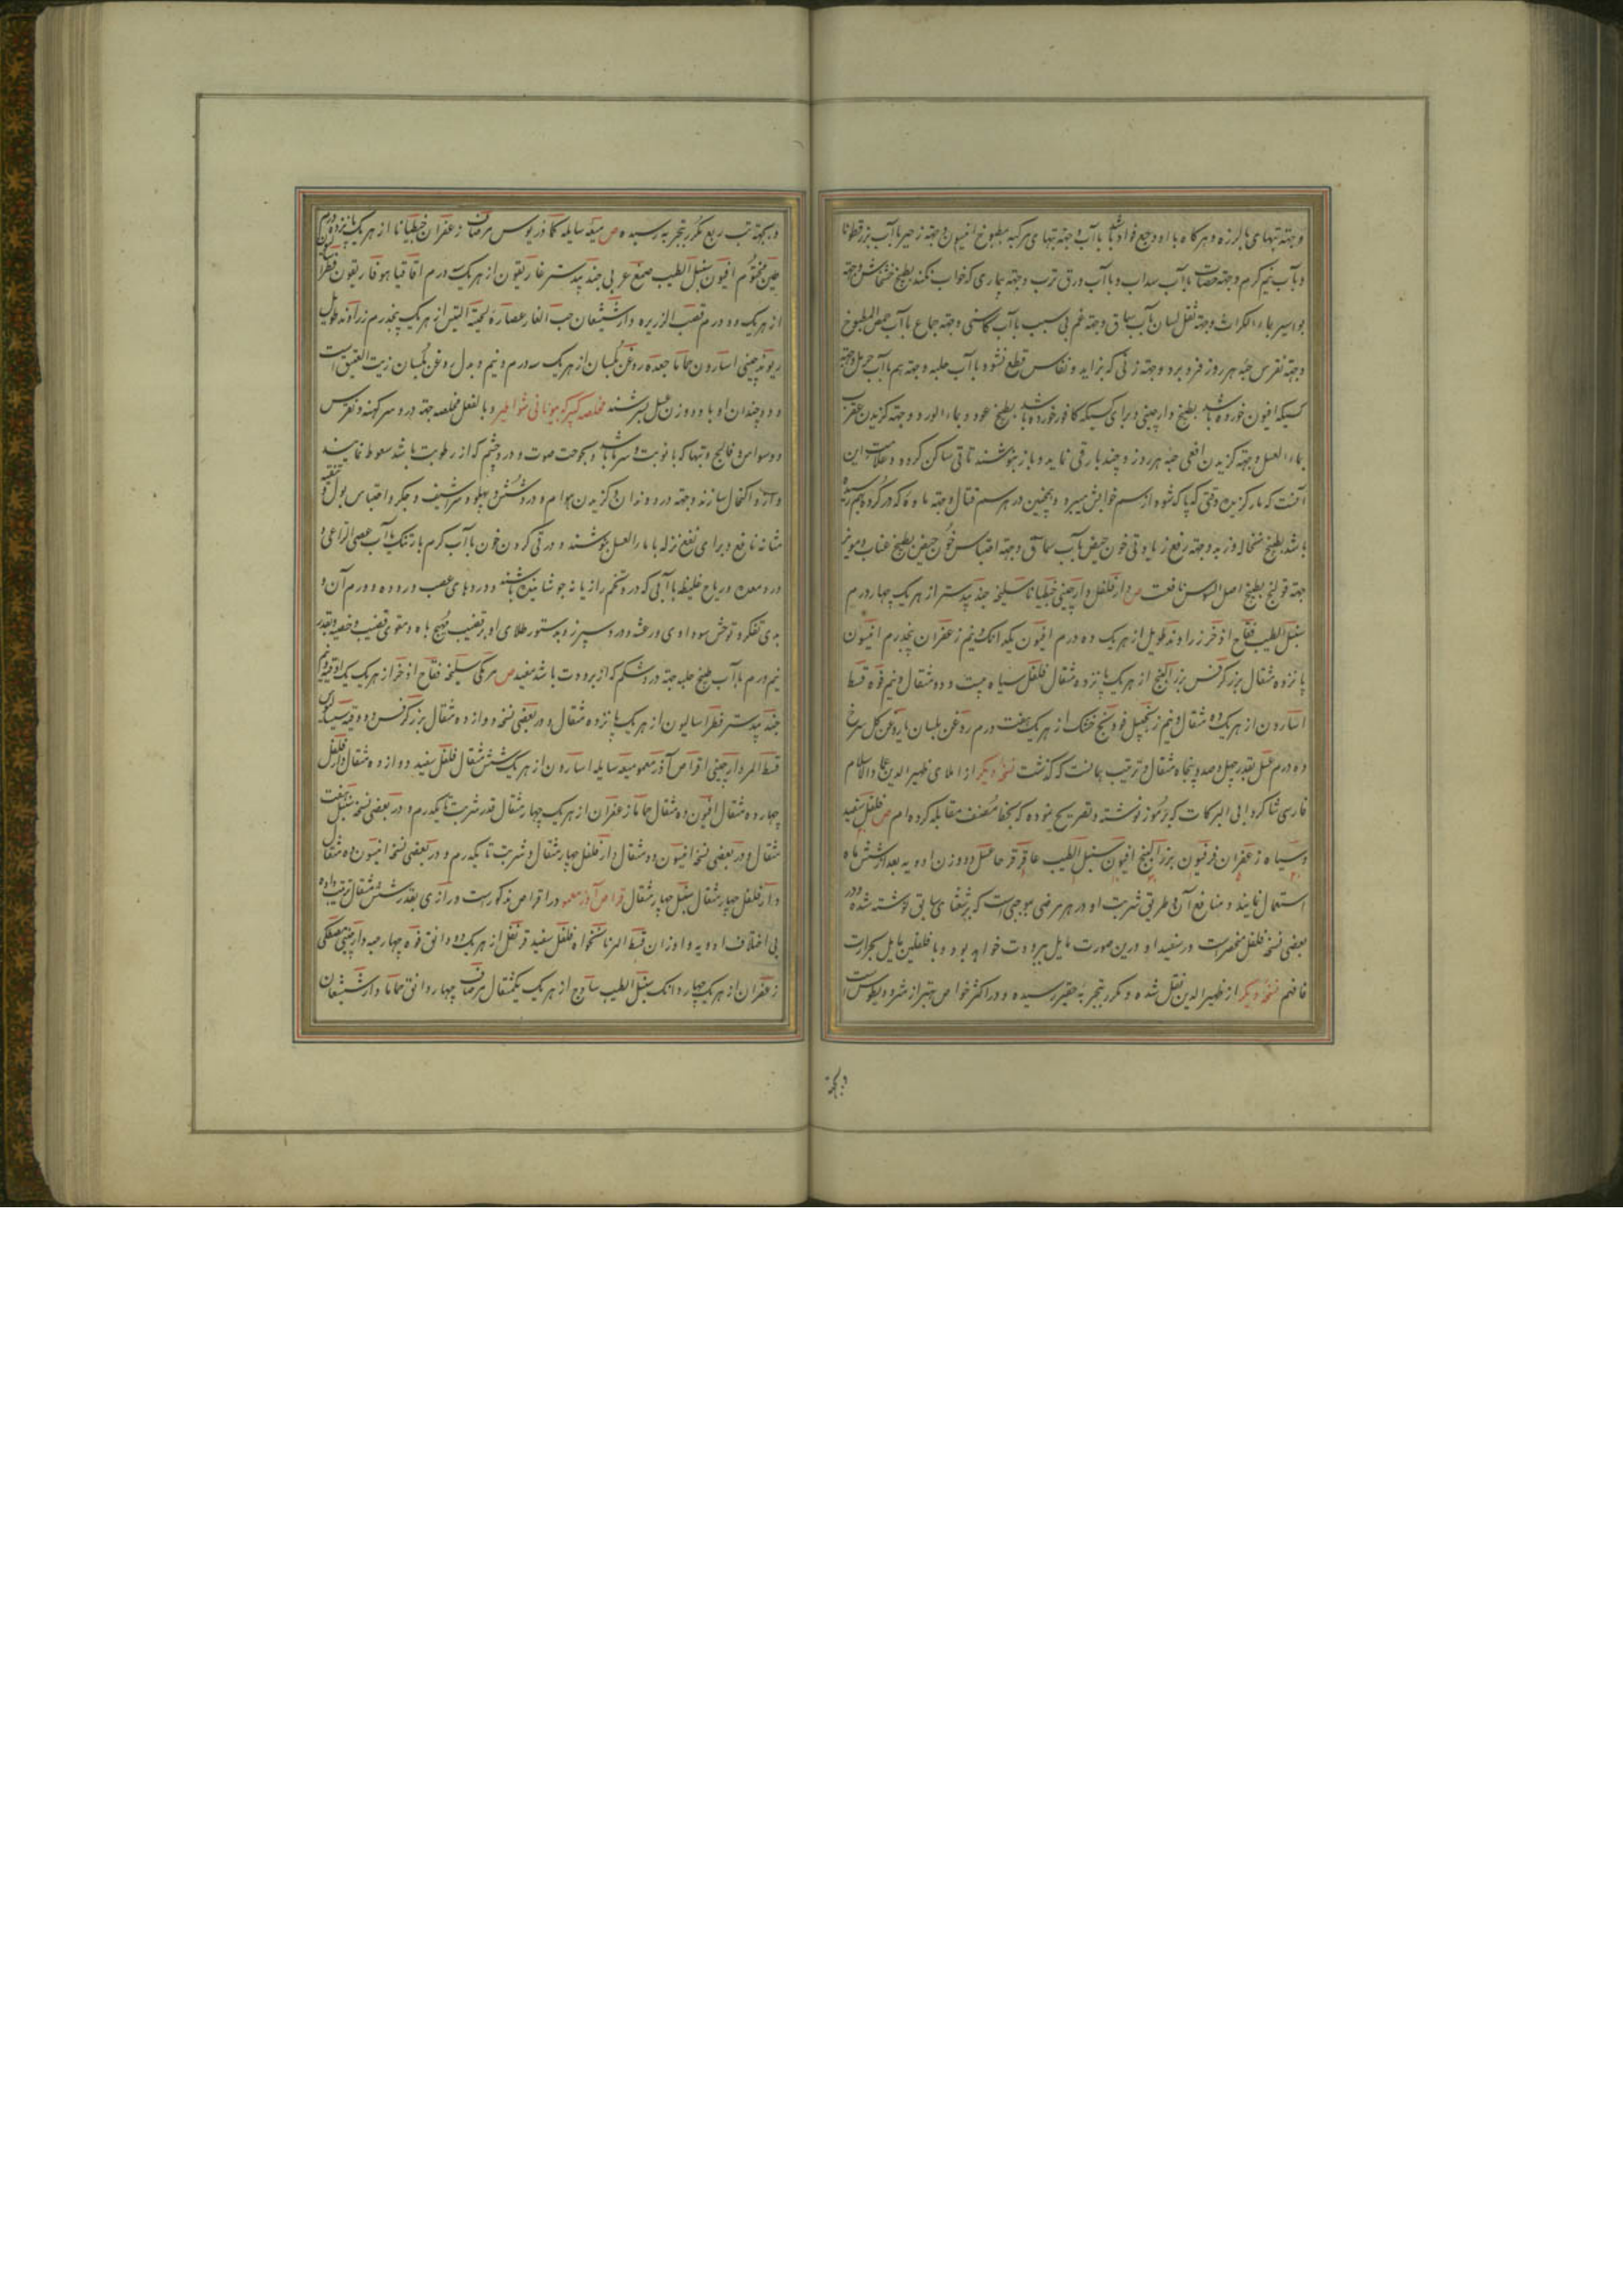 وجهته تبهای با لرزه و هرگاه با او وجع فواد باشد با آب وجهته تبهای مرکبه بمطبوخ افتیمون وجهته زحیر با آب بزرقطونا
و با آب نیم گرم وجهته حصات با آب سداب و با آب ورق ترب وجهته بیماری که خواب نکند بطبیخ خشخاش وجهته
بواسیر بماء الکراث وجهته ثقل لسان بآب سماق وجهته غم بی سبب با آب کاسنی وجهته جماع با آب حمص المطبوخ
وجهته نقرس حبه هر روز فرو برد وجهته زنی که بزاید و نفاس قطع نشود با آب حلبه وجهته سم با آب وجهته
کسیکه افیون خورده باشد بطبیخ دارچینی و برای کسیکه کافور خورده باشد بطبیخ عود و بماء الورد وجهته گزیدن عقرب
بماء العسل وجهته گزیدن افعی حبه هر روز و چند بار قی نماید و باز بنوشند تا قی ساکن گردد و علامت این
آنست که مار گزیده وقتی که پاک شود از سم خوابش میبرد و همچنین در هر سم قتال وجهته ماده که در گرده بهم رسیده
باشد بطبیخ وجهته رفع زیادتی خون حیض بآب سماق وجهته احتباس خون حیض بطبیخ عناب و مویز
جهته قولنج بطبیخ اصل السوس نافعست ص دارفلفل دارچینی جنطیانا سلیخه جند بیدستر از هر یک چهار درم
سنبل الطیب فقاح اذخر زراوند طویل از هر یک ده درم افیون یکدانک و نیم زعفران پنجدرم افتیمون
پانزده مثقال بزر کرفس بزر البنج از هر یک پانزده مثقال فلفل سیاه بیست و ده مثقال و نیم فوه قسط
اسارون از هر یک ده مثقال و نیم زنجبیل فودنج خشک از هر یک هفت درم روغن بلسان یا روغن گل سرخ
ده درم عسل بقدر چهل و صد و پنجاه مثقال و ترتیب همانست که گذشت نسخه دیگر از املای ظهیر الدین عماد الاسلام
فارسی شاگرد ابی البرکات که برموز نوشته و تصریح نموده که بخط مصنف مقابله کرده ام ص فلفل سفید
و سیاه زعفران فرفیون بزر البنج افیون سنبل الطیب عاقرقرحا عسل دو وزن ادویه بعد از شش ماه
استعمال نمایند و منافع آن و طریق شربت او در هر مرضی بموجبی است که برشعثای سابق نوشته شده و در
بعضی نسخ فلفل منحصر است در سفید او و درین صورت مایل ببرودت خواهد بود و با فلفلین مایل بحرارت
فافهم نسخه دیگر از ظهیر الدین نقل شده و مکرر بتجربه حقیر رسیده و در اکثر خواص بهتر از مثرودیطوس است
و بجهة
و بجهة تب ربع مکرر بتجربه رسیده ص میعه سایله کماذریوس مرصاف زعفران جنطیانا از هر یک پانزده درم
طین مختوم افیون سنبل الطیب صمغ عربی جند بیدستر غاریقون از هر یک درم اقاقیا هوفاریقون
از هر یک ده درم قصب الذریره دارشیشعان حب الغار عصاره لحیة التیس از هر یک پنجدرم زراوند طویل
ریوند چینی اسارون حماما جعده روغن بلسان از هر یک سه درم و نیم و بدل روغن بلسان زیت العتیق است
و دو چندان او با دو وزن عسل بسرشند مخلصه کبیر که بیونانی شواطیر و بالفعل مخلصه جهته درد سر کهنه و نقرس
و وسواس و فالج و تبها که با نوبت و سرما باشد و بحوحت صوت و درد چشم که از رطوبت باشد سعوط نمایند
و از او اکتحال سازند وجهته درد دندان و گزیدن هوام و درد شش و پهلو و شراسیف و جگر و احتباس بول و
مثانه نافع و برای نزله با ماء العسل بنوشند و در قی کردن خون با آب گرم با آب عصی الراعی و
درد معده و ریاح غلیظ با آبی که در و تخم رازیانه جوشانیده باشند و دردهای عصب و روده و ورم آن و
بدی تفکر و توحش سوداوی و رعشه و درد سپرز و بدستور طلای او بر قضیب مهیج باه و مقوی قضیب و خصیه و بقدر
نیم درم با آب طبیخ حلبه جهته درد شکم که از برودت باشد مفید ص مر مکی سلیخه فقاح اذخر از هر یک یک اوقیه و نیم
جند بیدستر فطراسالیون از هر یک پانزده مثقال و در بعضی نسخه دوازده مثقال بزر کرفس دو وقیه
قسط المر دارچینی اقراص آذرمعمو میعه سایله اسارون از هر یک شش مثقال فلفل سفید دوازده مثقال دارفلفل
چهارده مثقال افیون ده مثقال حماما زعفران از هر یک چهار مثقال قدر شربت تا یکدرم و در بعضی نسخه سنبل هفت
مثقال و در بعضی نسخه افتیمون ده مثقال دارفلفل چهار مثقال و شربت تا یکدرم و در بعضی نسخه افتیمون ده مثقال
دارفلفل چهار مثقال سنبل چهار مثقال قراص آذرمعمو در اقراص مذکور است و رازی بقدر شش مثقال ترتیب داده
بی اختلاف ادویه و اوزان قسط المر نانخواه فلفل سفید قرنفل از هر یک دو دانق فوه چهار حبه دارچینی مصطکی
زعفران از هر یک چهار دانک سنبل الطیب ساذج از هر یک یکمثقال مرصاف چهار دانق حماما دارشیشعان